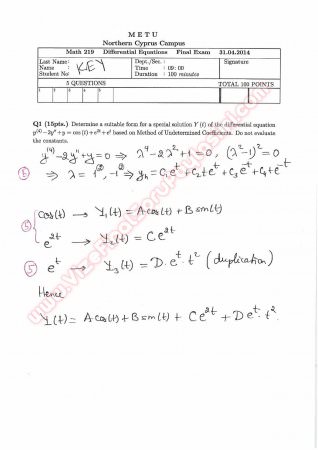 M E T U
Northern Cyprus Campus
Math 219 Differential Equations Final Exam 31.04.2014
Last Name: Dept./Sec.: Signature
Name : KEY Time : 09:00
Student No: Duration : 100 minutes
5 QUESTIONS TOTAL 100 POINTS
1 2 3 4 5
Q1 (15pts.) Determine a suitable form for a special solution Y (t) of the differential equation
y⁽⁴⁾−2y″+y = cos (t)+e²ᵗ+eᵗ based on Method of Undetermined Coefficients. Do not evaluate
the constants.
y⁽⁴⁾-2y″+y=0 ⇒ λ⁴-2λ²+1=0, (λ²-1)²=0
⑤ ⇒ λ=1⁽²⁾, -1⁽²⁾ ⇒ y_h = C₁eᵗ+C₂teᵗ+C₃e⁻ᵗ+C₄te⁻ᵗ
⑤ cos(t) → Y₁(t)=A cos(t)+B sin(t)
e²ᵗ → Y₂(t)=Ce²ᵗ
⑤ eᵗ → Y₃(t)=D.eᵗ.t² (duplication)
Hence
Y(t)= A cos(t)+B sin(t)+ Ce²ᵗ+Deᵗ.t².